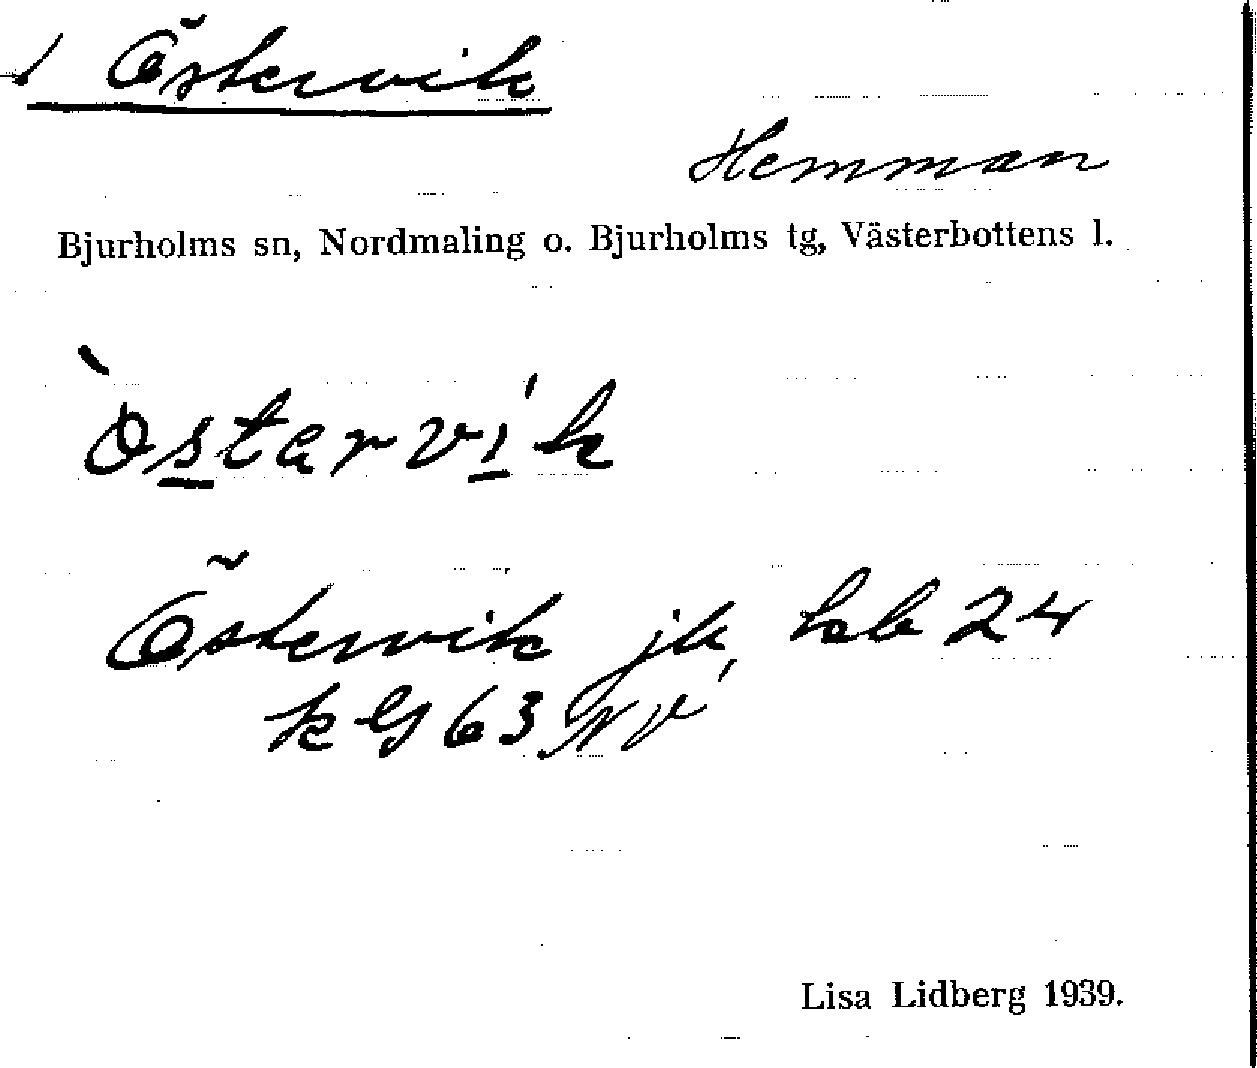 Östervik
Hemman
Bjurholms sn, Nordmaling o. Bjurholms tg, Västerbottens l.
òstarvík
Östervik jb, hb 24
kG 63 NV
Lisa Lidberg 1939.